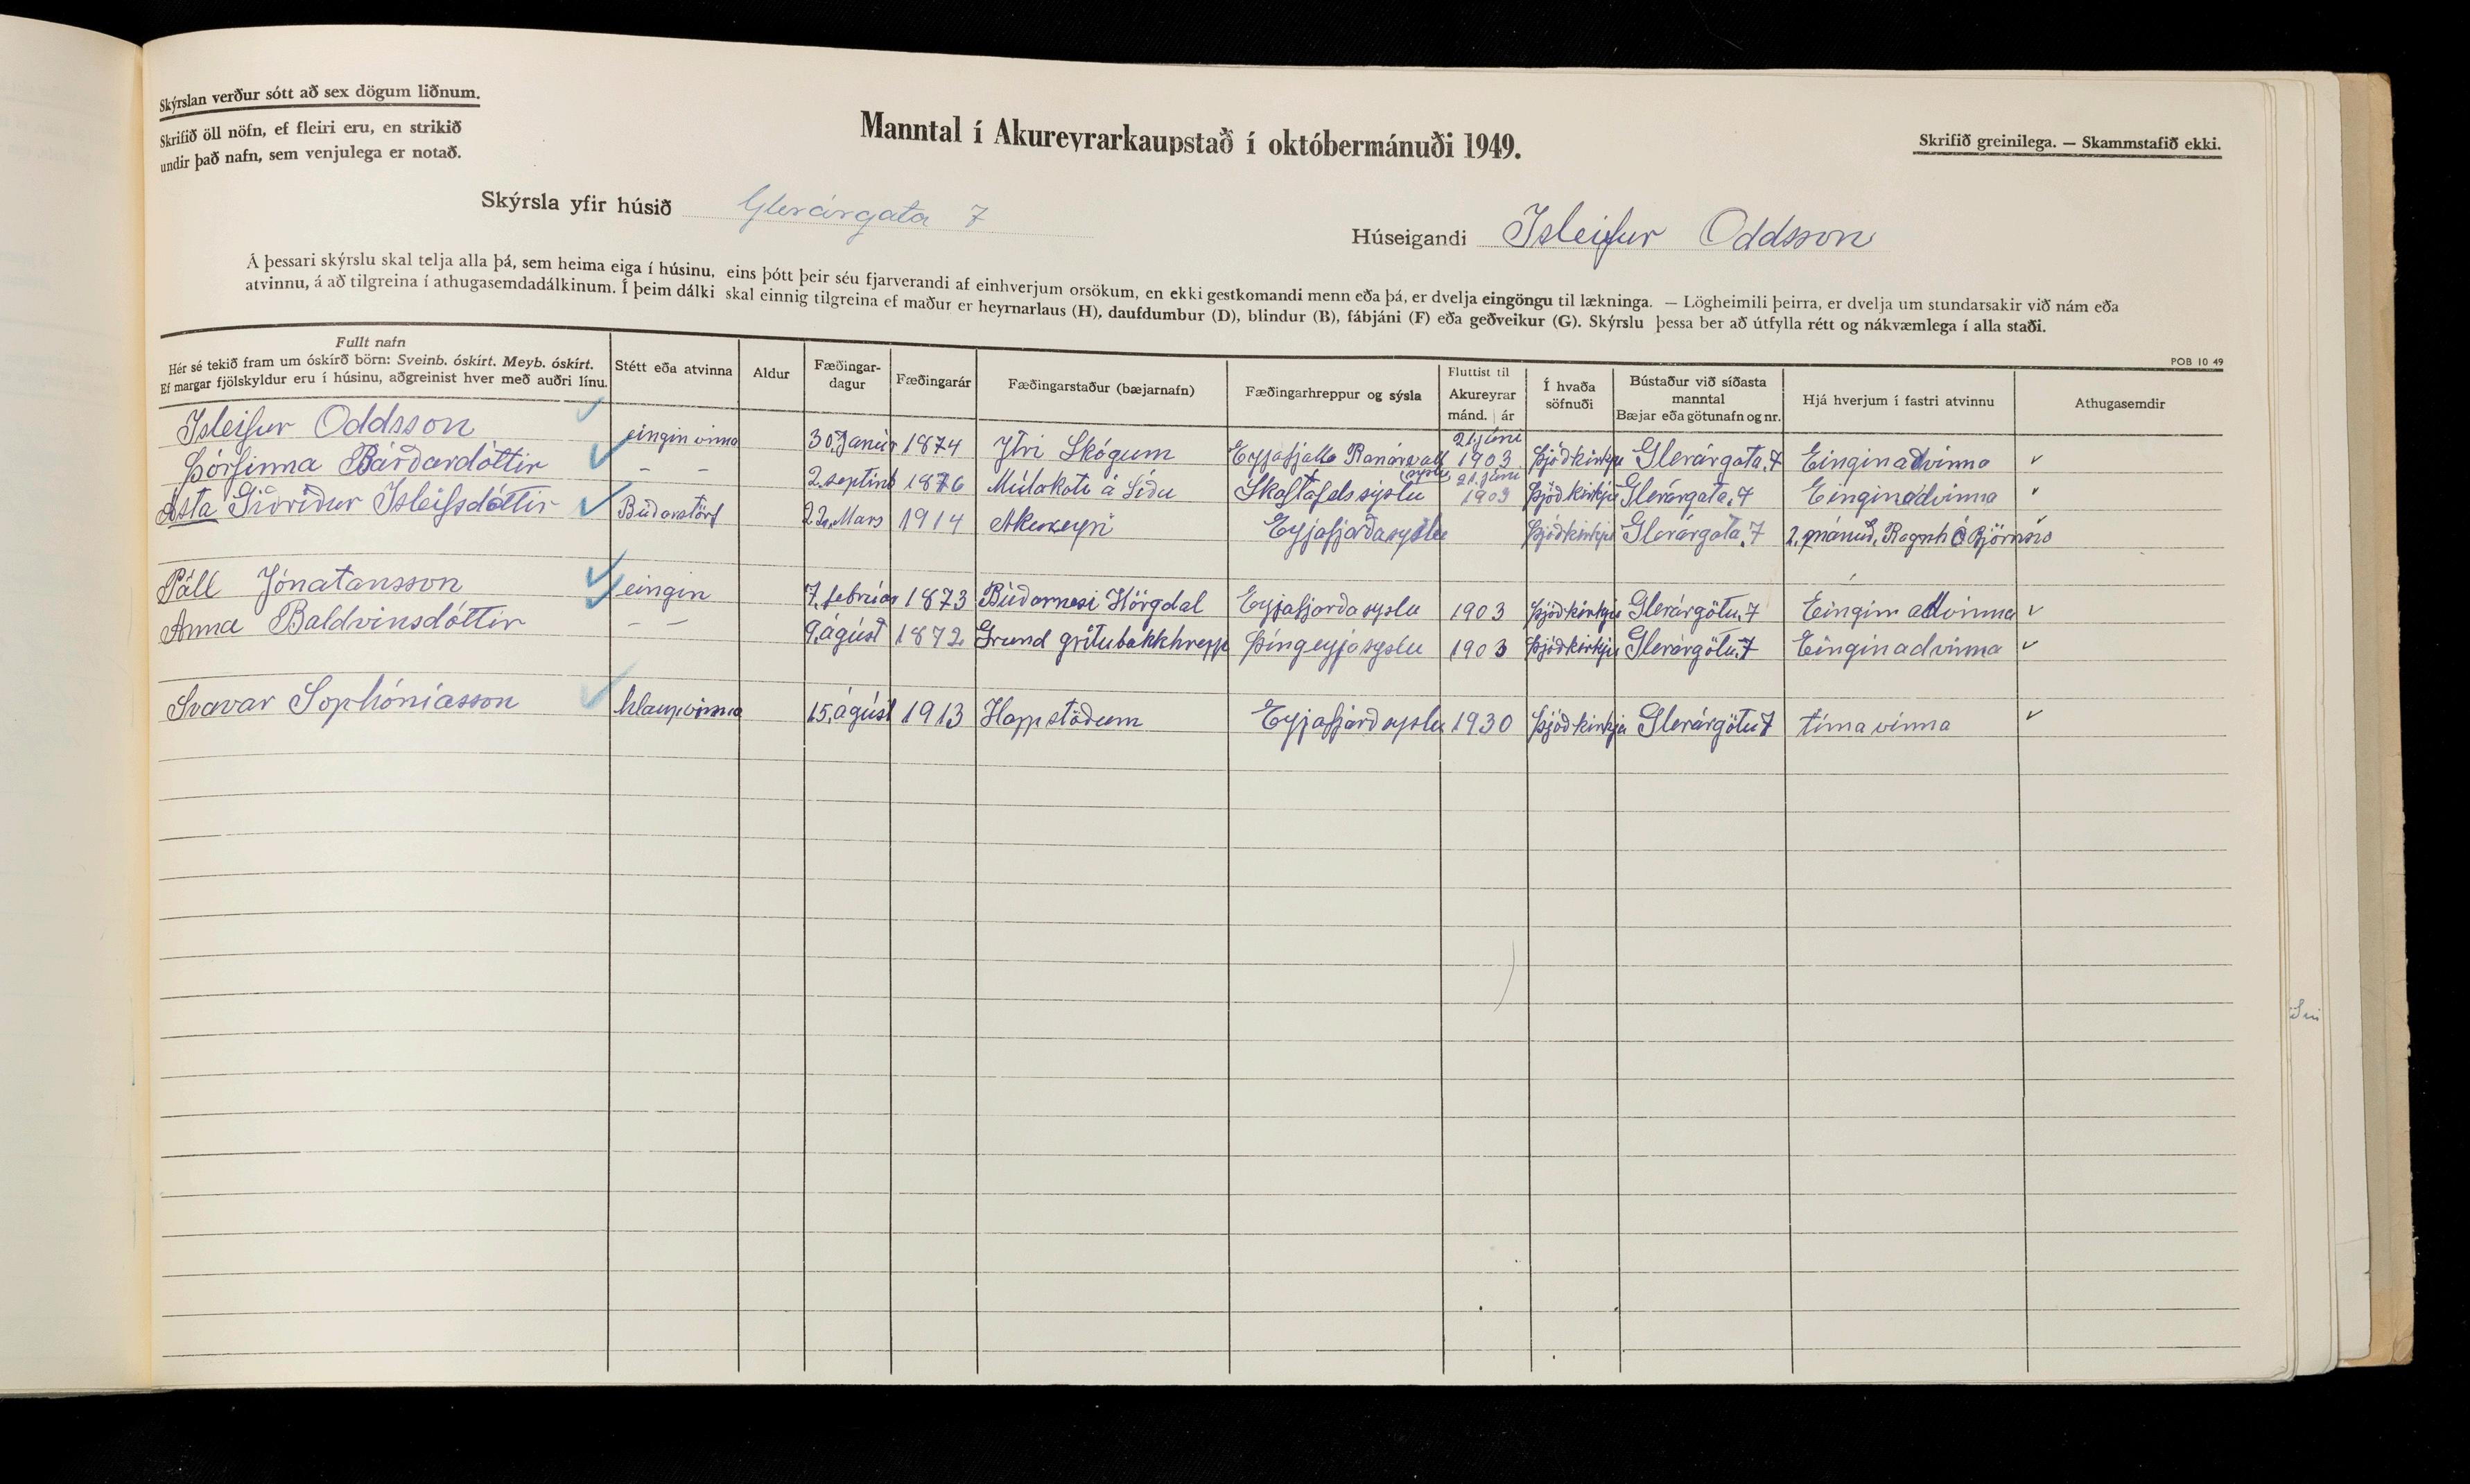 Skýrslan verður sótt að sex dögum liðnum.
Skrifið öll nöfn, ef fleiri eru, en strikið
undir það nafn, sem venjulega er notað.
Manntal í Akureyrarkaupstað í októbermánuði 1949.
Skrifið greinilega. — Skammstafið ekki.
Skýrsla yfir húsið Glerárgata 7
Húseigandi Isleifur Oddsson
Á þessari skýrslu skal telja alla þá, sem heima eiga í húsinu, eins þótt þeir séu fjarverandi af einhverjum orsökum, en ekki gestkomandi menn eða þá, er dvelja eingöngu til lækninga. — Lögheimili þeirra, er dvelja um stundarsakir við nám eða
atvinnu, á að tilgreina í athugasemdadálkinum. Í þeim dálki skal einnig tilgreina ef maður er heyrnarlaus (H), daufdumbur (D), blindur (B), fábjáni (F) eða geðveikur (G). Skýrslu þessa ber að útfylla rétt og nákvæmlega í alla staði.
POB 10 49
Fullt nafn
Hér sé tekið fram um óskírð börn: Sveinb. óskírt. Meyb. óskírt.
Ef margar fjölskyldur eru í húsinu, aðgreinist hver með auðri línu.
Stétt eða atvinna
Aldur
Fæðingar-
dagur
Fæðingarár
Fæðingarstaður (bæjarnafn)
Fæðingarhreppur og sýsla
Fluttist til
Akureyrar
mánd. ár
Í hvaða
söfnuði
Bústaður við síðasta
manntal
Bæjar eða götunafn og nr.
Hjá hverjum í fastri atvinnu
Athugasemdir
Isleifur Oddsson ✓ eingin vinna 30. Janúar 1874 Ytri Skógum Eyjafjalla Ranárvall sýslu 21. júni 1903 Þjóðkirkju Glerárgata. 7 Eingin advinna ✓
Þórfinna Bárðardóttir ✓ – – 2. septinb 1876 Múlakoti á Síðu Skaftafelssýslu 21. júni 1903 Þjóðkirkju Glerárgata. 7 Eingin advinna ✓
Ásta Guðríður Isleifsdóttir ✓ Búdarstörf 22. Mars 1914 Akureyri Eyjafjarðasyslu Þjóðkirkju Glerárgata. 7 2. mánuð, Ragnh Ó Björnsso
Páll Jónatansson ✓ eingin 7. febrúar 1873 Búdarnesi Hörgdal Eyjafjardasyslu 1903 Þjóðkirkju Glerárgötu. 7 Eingin advinna ✓
Anna Baldvinsdóttir ✓ – – 9. ágúst 1872 Grund grítubakkhrepp Þingeyjasyslu 1903 Þjóðkirkju Glerárgötu. 7 Eingin advinna ✓
Svavar Sophóníasson ✓ hlaupvinna 15. ágúst 1913 Happstödum Eyjafjardsyslu 1930 Þjóðkirkja Glerárgötu 7 tíma vinna ✓